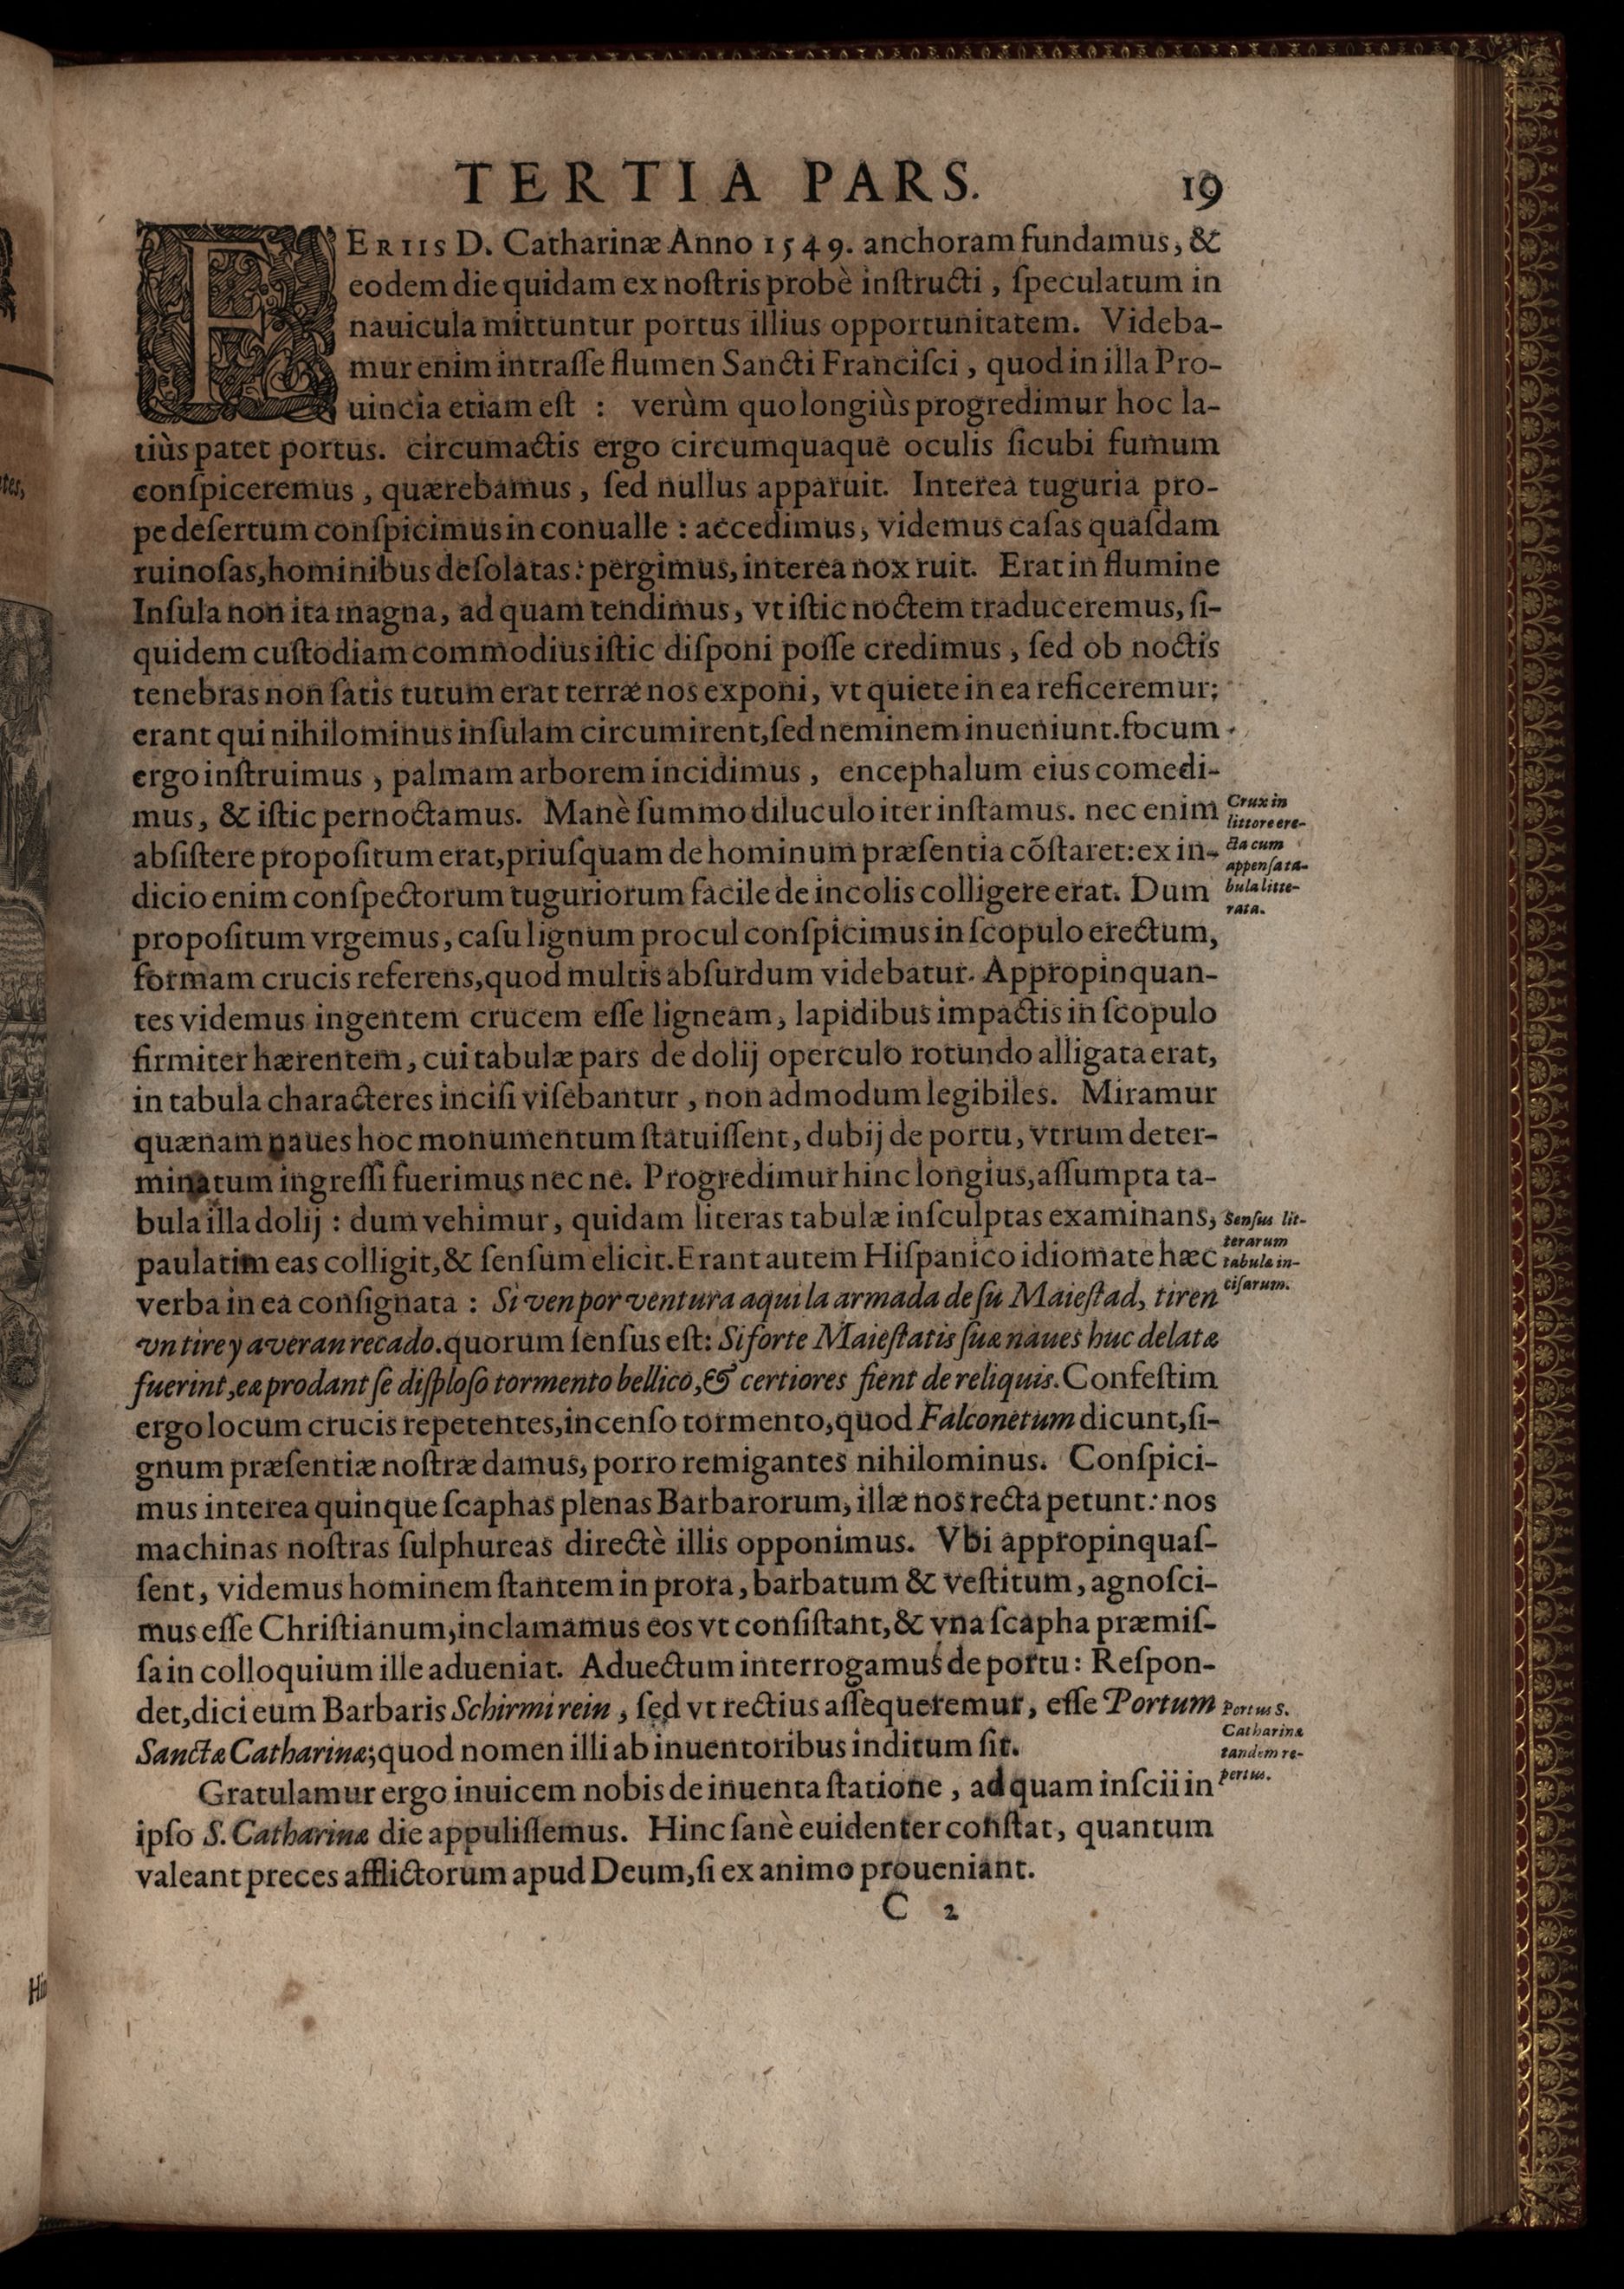 TERTIA PARS. 19
FERIIS D. Catharinæ Anno 1549. anchoram fundamus, &
eodem die quidam ex noſtris probè inſtructi, ſpeculatum in
nauicula mittuntur portus illius opportunitatem. Videba-
mur enim intraſſe flumen Sancti Franciſci, quod in illa Pro-
uincia etiam eſt : verùm quo longiùs progredimur hoc la-
tiùs patet portus. circumactis ergo circumquaque oculis ſicubi fumum
conſpiceremus, quærebamus, ſed nullus apparuit. Interea tuguria pro-
pe deſertum conſpicimus in conualle : accedimus, videmus caſas quaſdam
ruinoſas, hominibus deſolatas : pergimus, interea nox ruit. Erat in flumine
Inſula non ita magna, ad quam tendimus, vt iſtic noctem traduceremus, ſi-
quidem cuſtodiam commodius iſtic diſponi poſſe credimus, ſed ob noctis
tenebras non ſatis tutum erat terræ nos exponi, vt quiete in ea reficeremur;
erant qui nihilominus inſulam circumirent, ſed neminem inueniunt. focum
ergo inſtruimus, palmam arborem incidimus, encephalum eius comedi-
mus, & iſtic pernoctamus. Manè ſummo diluculo iter inſtamus. nec enim
abſiſtere propoſitum erat, priuſquam de hominum præſentia cõſtaret: ex in-
dicio enim conſpectorum tuguriorum facile de incolis colligere erat. Dum
propoſitum vrgemus, caſu lignum procul conſpicimus in ſcopulo erectum,
formam crucis referens, quod multis abſurdum videbatur. Appropinquan-
tes videmus ingentem crucem eſſe ligneam, lapidibus impactis in ſcopulo
firmiter hærentem, cui tabulæ pars de dolij operculo rotundo alligata erat,
in tabula characteres inciſi viſebantur, non admodum legibiles. Miramur
quænam naues hoc monumentum ſtatuiſſent, dubij de portu, vtrum deter-
minatum ingreſſi fuerimus nec ne. Progredimur hinc longius, aſſumpta ta-
bula illa dolij : dum vehimur, quidam literas tabulæ inſculptas examinans,
paulatim eas colligit, & ſenſum elicit. Erant autem Hiſpanico idiomate hæc
verba in ea conſignata : Si ven por ventura aqui la armada de ſu Maieſtad, tiren
vn tire y averan recado. quorum ſenſus eſt: Si forte Maieſtatis ſuæ naues huc delatæ
fuerint, eæ prodant ſe diſploſo tormento bellico, & certiores fient de reliquis. Confeſtim
ergo locum crucis repetentes, incenſo tormento, quod Falconetum dicunt, ſi-
gnum præſentiæ noſtræ damus, porro remigantes nihilominus. Conſpici-
mus interea quinque ſcaphas plenas Barbarorum, illæ nos recta petunt : nos
machinas noſtras ſulphureas directè illis opponimus. Vbi appropinquaſ-
ſent, videmus hominem ſtantem in prora, barbatum & veſtitum, agnoſci-
mus eſſe Chriſtianum, inclamamus eos vt conſiſtant, & vna ſcapha præmiſ-
ſa in colloquium ille adueniat. Aduectum interrogamus de portu : Reſpon-
det, dici eum Barbaris Schirmirein, ſed vt rectius aſſequeremur, eſſe Portum
Sanctæ Catharinæ; quod nomen illi ab inuentoribus inditum ſit.
Gratulamur ergo inuicem nobis de inuenta ſtatione, ad quam inſcii in
ipſo S. Catharinæ die appuliſſemus. Hinc ſanè euidenter conſtat, quantum
valeant preces afflictorum apud Deum, ſi ex animo proueniant.
C 2
Crux in
littore ere-
cta cum
appenſa ta-
bula litte-
rata.
Senſus lit-
terarum
tabulæ in-
ciſarum.
Portus S.
Catharinæ
tandem re-
pertus.
tes,
Hin